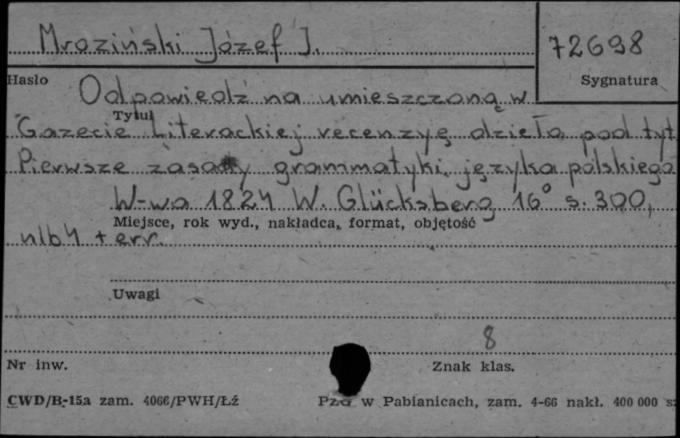 Mroziński Józef J.
72698
Hasło
Sygnatura
Odpowiedź na umieszczoną w
Tytuł
Gazecie Literackiej recenzyę dzieła pod tyt
Pierwsze zasady grammatyki języka polskiego
W-wa 1824 W. Glücksberg 16° s. 300,
Miejsce, rok wyd., nakładca, format, objętość
nlb 4 + err.
Uwagi
8
Nr inw.
Znak klas.
CWD/B-15a zam. 4066/PWH/Łź
PZG w Pabianicach, zam. 4-66 nakł. 400 000 sz